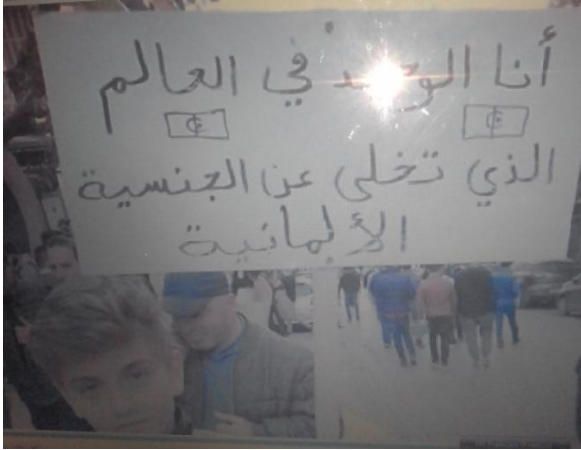 أنا الوحيد في العالم
الذي تخلى عن الجنسية
الألمانية